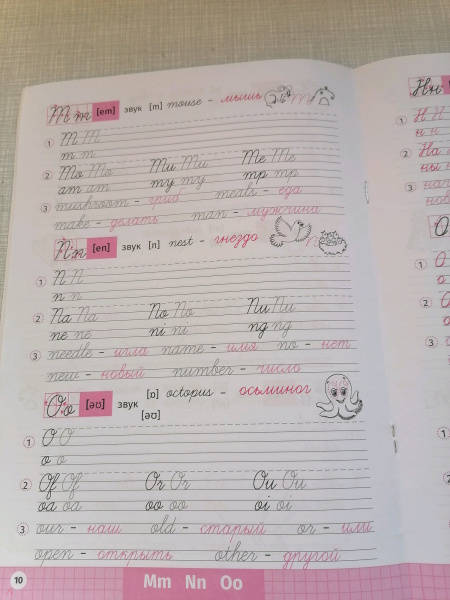 M m [em] звук [m] mouse - мышь
1 M M
m m
2 Mo Mo Mu Mu Me Me
am am my my mp mp
3 mushroom - гриб meals - еда
make - делать man - мужчина
N n [en] звук [n] nest - гнездо
1 N N
n n
2 Na Na No No Nu Nu
ne ne ni ni ng ng
3 needle - игла name - имя no - нет
new - новый number - число
O o [əʊ] звук [ɒ] octopus - осьминог
[əʊ]
1 O O
o o
2 Of Of Or Or Ou Ou
oa oa oo oo oi oi
3 our - наш old - старый or - или
open - открыть other - другой
10 Mm Nn Oo
Н н
1 Н Н
н н
2 На
ны
3
нов
О
1 О
о
2
3
1
2
3